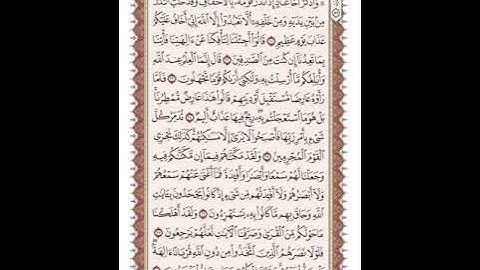 ۞ وَٱذْكُرْ أَخَا عَادٍ إِذْ أَنذَرَ قَوْمَهُۥ بِٱلْأَحْقَافِ وَقَدْ خَلَتِ ٱلنُّذُرُ
مِنۢ بَيْنِ يَدَيْهِ وَمِنْ خَلْفِهِۦٓ أَلَّا تَعْبُدُوٓا۟ إِلَّا ٱللَّهَ إِنِّىٓ أَخَافُ عَلَيْكُمْ
عَذَابَ يَوْمٍ عَظِيمٍ ٢١ قَالُوٓا۟ أَجِئْتَنَا لِتَأْفِكَنَا عَنْ ءَالِهَتِنَا فَأْتِنَا
بِمَا تَعِدُنَآ إِن كُنتَ مِنَ ٱلصَّٰدِقِينَ ٢٢ قَالَ إِنَّمَا ٱلْعِلْمُ عِندَ ٱللَّهِ
وَأُبَلِّغُكُم مَّآ أُرْسِلْتُ بِهِۦ وَلَٰكِنِّىٓ أَرَىٰكُمْ قَوْمًا تَجْهَلُونَ ٢٣ فَلَمَّا
رَأَوْهُ عَارِضًا مُّسْتَقْبِلَ أَوْدِيَتِهِمْ قَالُوا۟ هَٰذَا عَارِضٌ مُّمْطِرُنَا ۚ
بَلْ هُوَ مَا ٱسْتَعْجَلْتُم بِهِۦ ۖ رِيحٌ فِيهَا عَذَابٌ أَلِيمٌ ٢٤ تُدَمِّرُ كُلَّ
شَىْءٍۭ بِأَمْرِ رَبِّهَا فَأَصْبَحُوا۟ لَا يُرَىٰٓ إِلَّا مَسَٰكِنُهُمْ ۚ كَذَٰلِكَ نَجْزِى
ٱلْقَوْمَ ٱلْمُجْرِمِينَ ٢٥ وَلَقَدْ مَكَّنَّٰهُمْ فِيمَآ إِن مَّكَّنَّٰكُمْ فِيهِ
وَجَعَلْنَا لَهُمْ سَمْعًا وَأَبْصَٰرًا وَأَفْـِٔدَةً فَمَآ أَغْنَىٰ عَنْهُمْ سَمْعُهُمْ
وَلَآ أَبْصَٰرُهُمْ وَلَآ أَفْـِٔدَتُهُم مِّن شَىْءٍ إِذْ كَانُوا۟ يَجْحَدُونَ بِـَٔايَٰتِ
ٱللَّهِ وَحَاقَ بِهِم مَّا كَانُوا۟ بِهِۦ يَسْتَهْزِءُونَ ٢٦ وَلَقَدْ أَهْلَكْنَا
مَا حَوْلَكُم مِّنَ ٱلْقُرَىٰ وَصَرَّفْنَا ٱلْءَايَٰتِ لَعَلَّهُمْ يَرْجِعُونَ ٢٧
فَلَوْلَا نَصَرَهُمُ ٱلَّذِينَ ٱتَّخَذُوا۟ مِن دُونِ ٱللَّهِ قُرْبَانًا ءَالِهَةًۢ ۖ